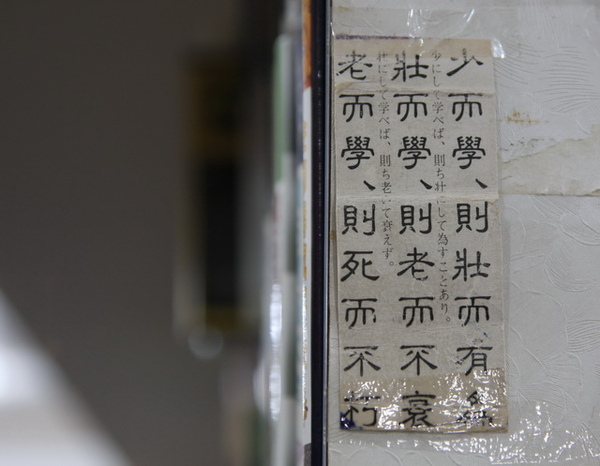 少而學、則壯而有為
少にして学べば、則ち壮にして為すことあり。
壯而學、則老而不衰
壮にして学べば、則ち老いて衰えず。
老而學、則死而不朽